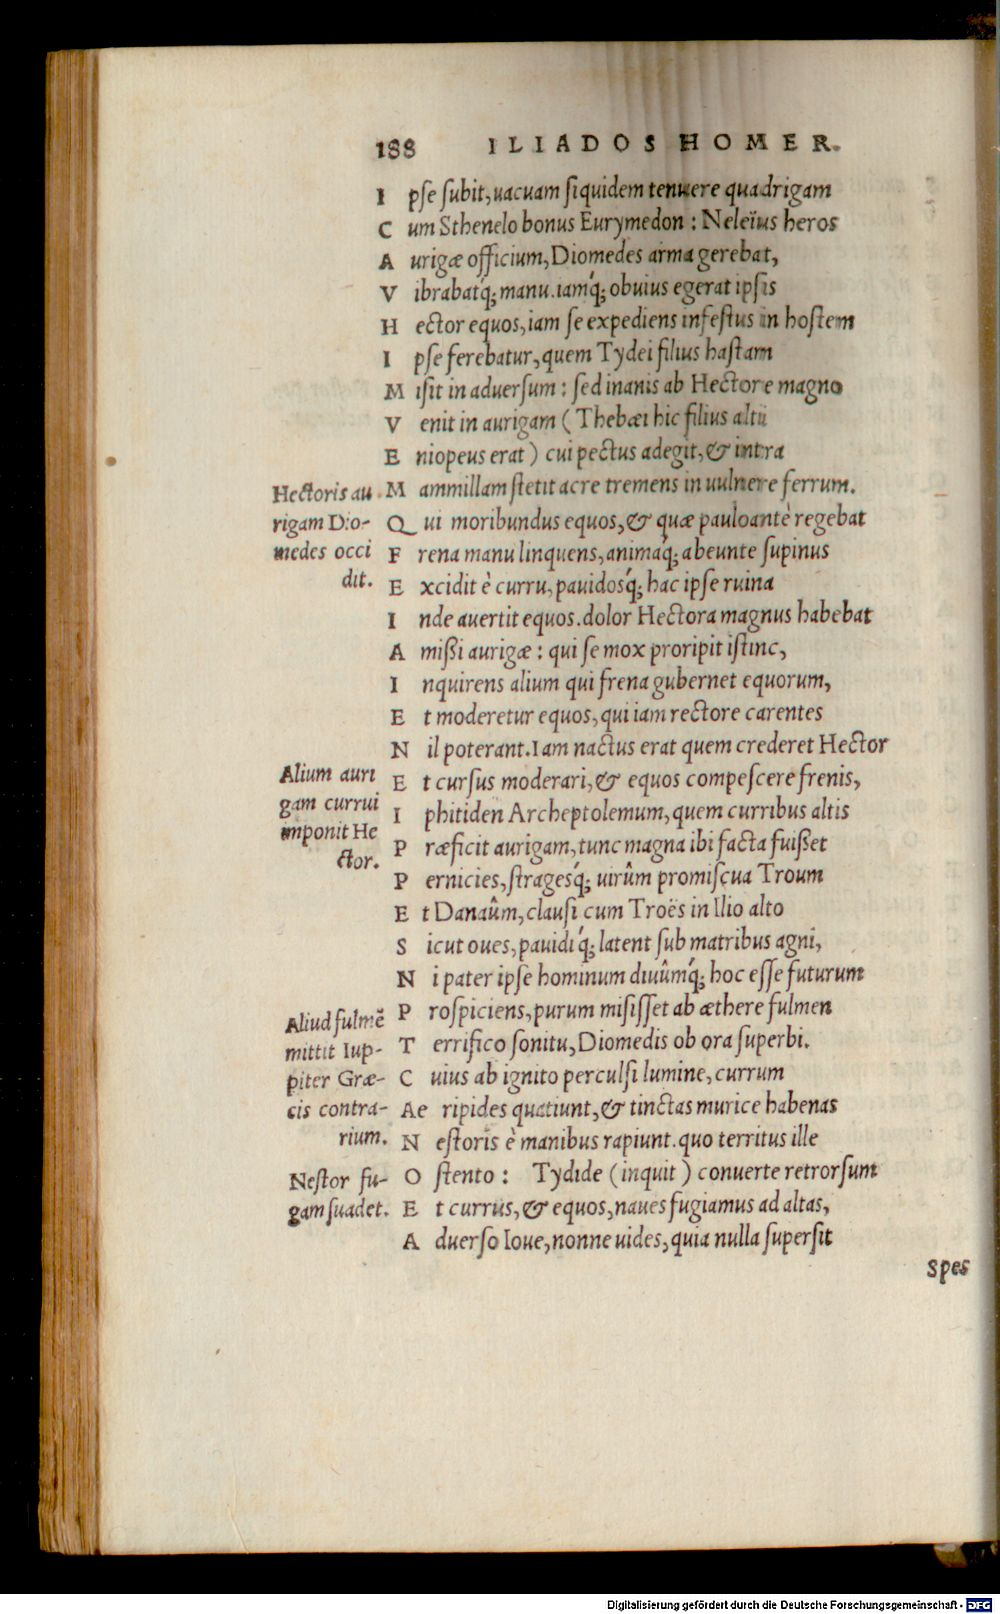 188 ILIADOS HOMER.
I pse subit, uacuam siquidem tenuere quadrigam
C um Sthenelo bonus Eurymedon : Neleïus heros
A urigæ officium, Diomedes arma gerebat,
V ibrabatq́; manu. iamq́; obuius egerat ipsis
H ector equos, iam se expediens infestus in hostem
I pse ferebatur, quem Tydei filius hastam
M isit in aduersum : sed inanis ab Hectore magno
V enit in aurigam ( Thebæi hic filius altii
E niopeus erat ) cui pectus adegit, & intra
M ammillam stetit acre tremens in uulnere ferrum.
Q ui moribundus equos, & quæ pauloantè regebat
F rena manu linquens, animaq́; abeunte supinus
E xcidit è curru, pauidosq́; hac ipse ruina
I nde auertit equos. dolor Hectora magnus habebat
A mißi aurigæ : qui se mox proripit istinc,
I nquirens alium qui frena gubernet equorum,
E t moderetur equos, qui iam rectore carentes
N il poterant. Iam nactus erat quem crederet Hector
E t cursus moderari, & equos compescere frenis,
I phitiden Archeptolemum, quem curribus altis
P ræficit aurigam, tunc magna ibi facta fuißet
P ernicies, stragesq́; uirûm promiscua Troum
E t Danaûm, clausi cum Troës in Ilio alto
S icut oues, pauidiq́; latent sub matribus agni,
N i pater ipse hominum diuûmq́; hoc esse futurum
P rospiciens, purum misisset ab æthere fulmen
T errifico sonitu, Diomedis ob ora superbi.
C uius ab ignito perculsi lumine, currum
Ae ripides quatiunt, & tinctas murice habenas
N estoris è manibus rapiunt. quo territus ille
O stento : Tydide ( inquit ) conuerte retrorsum
E t currus, & equos, naues fugiamus ad altas,
A duerso Ioue, nonne uides, quia nulla supersit
Spes
Hectoris au
rigam Dio-
medes occi
dit.
Alium auri
gam currui
imponit He
ctor.
Aliud fulmẽ
mittit Iup-
piter Græ-
cis contra-
rium.
Nestor fu-
gam suadet.
Digitalisierung gefördert durch die Deutsche Forschungsgemeinschaft - DFG